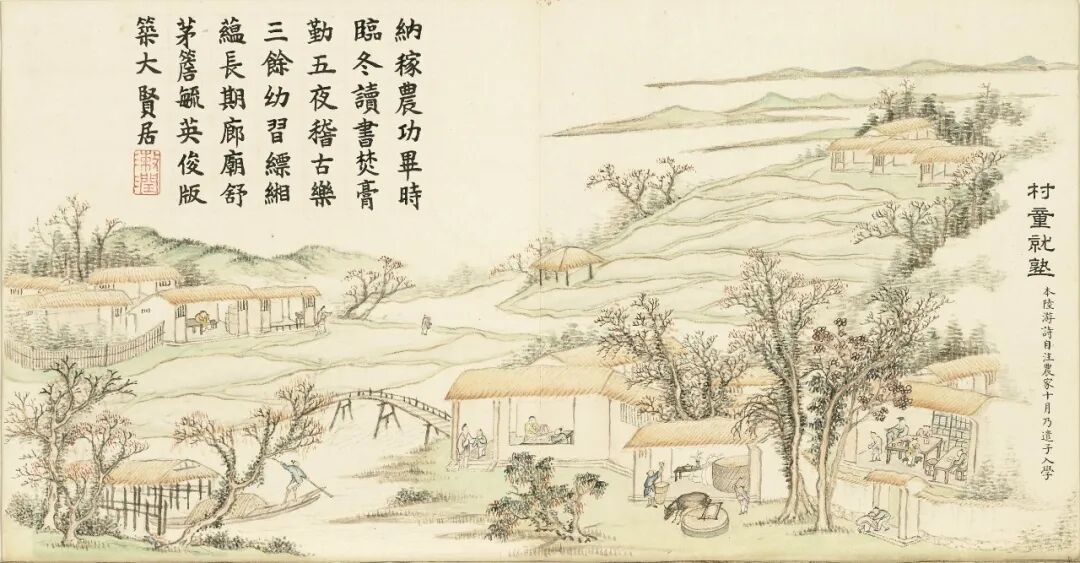 村童就塾
本陸游詩自注農家十月乃遣子入學
納稼農功畢時
臨冬讀書焚膏
勤五夜稽古樂
三餘幼習縹緗
蘊長期廊廟舒
茅簷毓英俊版
築大賢居